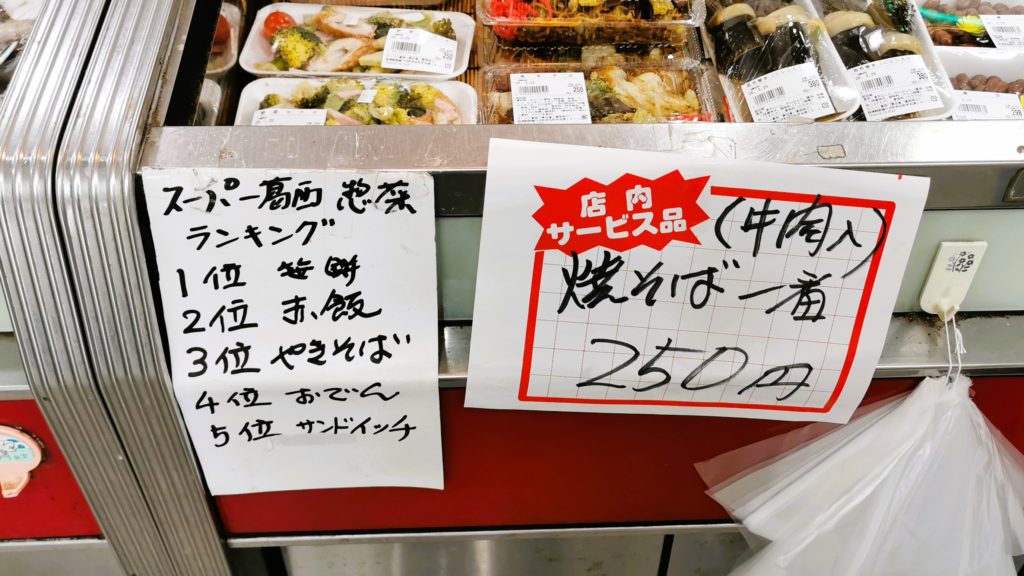 スーパー葛西 惣菜
ランキング
1位 笹餅
2位 赤飯
3位 やきそば
4位 おでん
5位 サンドイッチ
店内
サービス品
(牛肉入)
焼そば一番
250円
250